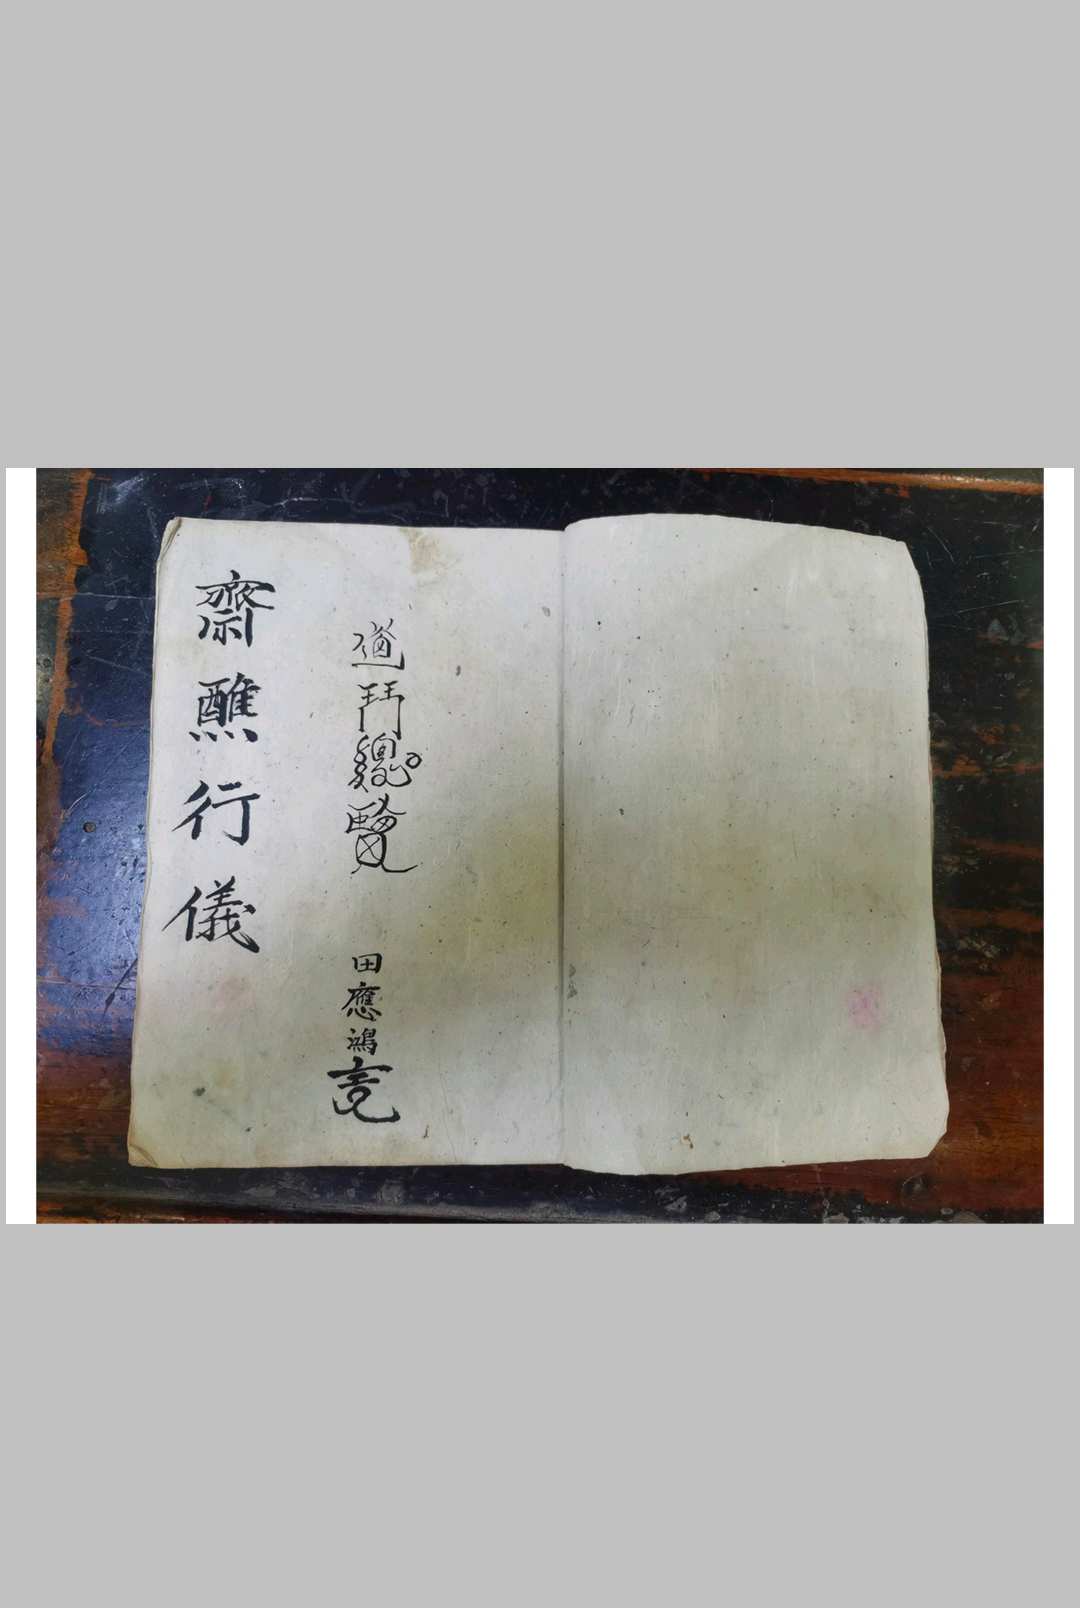 道門總覽
田應鴻
齋醮行儀